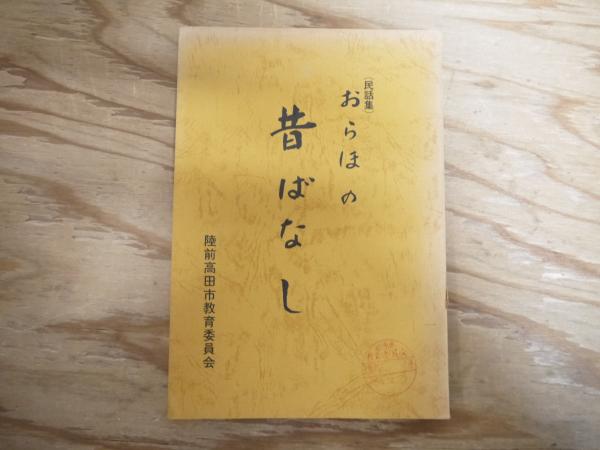 (民話集)
おらほの
昔ばなし
陸前高田市教育委員会